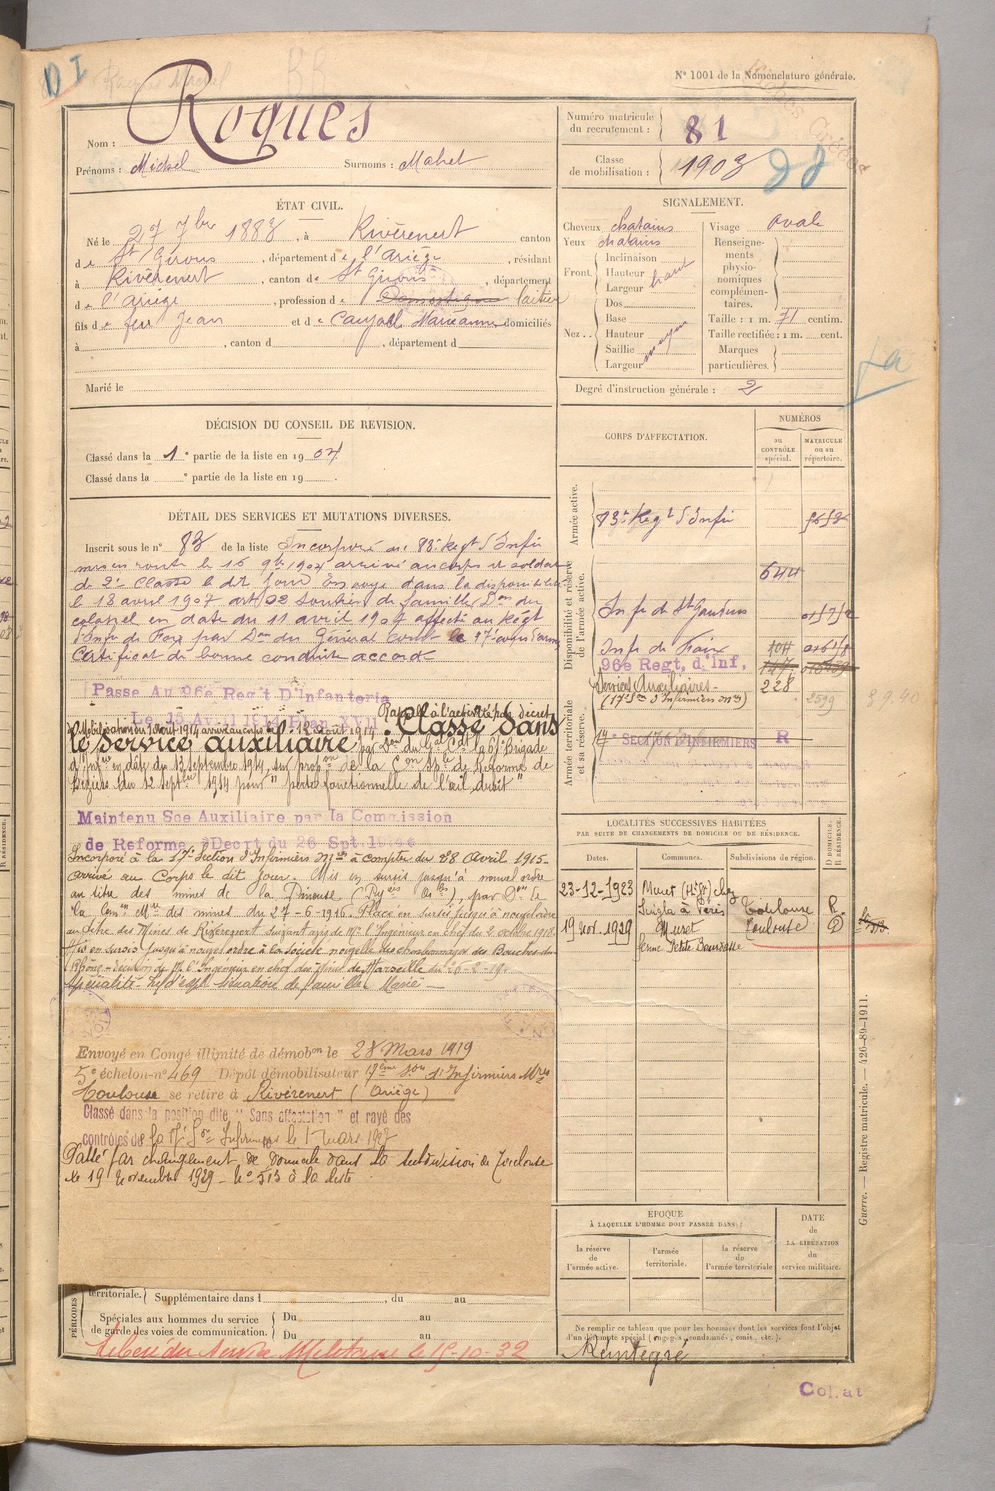 N° 1001 de la Nomenclature générale.
Roques
Nom :
Prénoms : Michel Surnoms : Mahet
Numéro matricule du recrutement : 81
Classe de mobilisation : 1903
ÉTAT CIVIL.
Né le 27 7bre 1883, à Rivèrenert canton
de St Girons, département de l'Ariège, résidant
à Rivèrenert, canton de St Girons, département
de l'Ariège, profession de laitier
fils de feu Jean et de Marianne domiciliés
à , canton d , département d
Marié le
SIGNALEMENT.
Cheveux chatains
Yeux chatains
Front. Inclinaison
Hauteur haut
Largeur
Nez.. Dos
Base
Hauteur moyen
Saillie
Largeur
Visage ovale
Renseignements physionomiques complémentaires.
Taille : 1 m. 71 centim.
Taille rectifiée : 1 m. cent.
Marques particulières.
Degré d'instruction générale : 2
DÉCISION DU CONSEIL DE REVISION.
Classé dans la 1e partie de la liste en 1904
Classé dans la e partie de la liste en 19 .
CORPS D'AFFECTATION.
NUMÉROS
au CONTRÔLE spécial.
MATRICULE ou au répertoire.
Armée active.
83e Regt d'Infie
Disponibilité et réserve de l'armée active.
644
Infie de St Gaudens
Infie de Foix 104
96e Regt. d'Inf.
Armée territoriale et sa réserve.
Services Auxiliaires 228
(17e Son d'Infirmiers mres) 2599
17e SECTION INFIRMIERS R
DÉTAIL DES SERVICES ET MUTATIONS DIVERSES.
Inscrit sous le n° 83 de la liste Incorporé au 83e Regt d'Infie
mis en route le 16 9bre 1904 arrivé au corps et soldat
de 2e classe le dit jour Envoyé dans la disponibilité
le 13 avril 1907 art 22 soutien de famille Don du
colonel en date du 11 avril 1907 affecté au Régt
d'Infie de Foix par Don du Général Comt le 17e corps d'armée
Certificat de bonne conduite accordé
Passe Au 96e Regt D'Infanterie
Le 15 Avril 1914 Plan XVII
Rappelé à l'activité par décret
de Mobilisation du 1 août 1914 arrivé au corps le 12 août 1914. Classé dans
le service auxiliaire par Don du Gal Cdt la 67e Brigade
d'Infie en date du 13 septembre 1914, sur propon de la Con Sple de Réforme de
Béziers du 12 septbre 1914 pour "perte fonctionnelle de l'œil droit"
Maintenu Sce Auxiliaire par la Commission
de Reforme Decrt du 26 Spt.
Incorporé à la 17e Section d'Infirmiers Mres à compter du 28 Avril 1915
arrivé au Corps le dit jour. Mis en sursis jusqu'à nouvel ordre
au titre des mines de la
des mines du 27-6-1916. Placé en sursis jusqu'à nouvel ordre
au titre des Mines de Rivèrenert suivant avis de Mr l'Ingénieur en chef du 2 octobre 1918.
Mis en sursis jusqu'à nouvel ordre à la société nouvelle des charbonnages des Bouches-du-
Rhône - Décision de Mr l'Ingénieur en chef des Mines de Marseille du 20-2-19.
situation de famille : Marié
Envoyé en Congé illimité de démobon le 28 Mars 1919
5e échelon n° 469 Dépôt démobilisateur 17ème Son d'Infirmiers Mres
Toulouse se retire à Rivèrenert (Ariège)
Classé dans la position dite "Sans affectation" et rayé des
contrôles de la 17e Son Infirmiers le 1 mars 1927
Passé par changement de Domicile dans la subdivision de Toulouse
le 19 Novembre 1929 - N° 513 à la liste
LOCALITÉS SUCCESSIVES HABITÉES
PAR SUITE DE CHANGEMENTS DE DOMICILE OU DE RÉSIDENCE.
Dates. Communes. Subdivisions de région. D DOMICILE. R RÉSIDENCE.
23-12-1923 Muret (Hte Gne) chez Toulouse R.
19 Nov. 1929 Muret Toulouse D
ferme Petite
Guerre. — Registre matricule. — 426-89-1911.
ÉPOQUE
À LAQUELLE L'HOMME DOIT PASSER DANS :
la réserve de l'armée active.
l'armée territoriale.
la réserve de l'armée territoriale
DATE de LA LIBÉRATION du service militaire.
territoriale. Supplémentaire dans l , du au
Spéciales aux hommes du service de garde des voies de communication. Du au
Du au
Ne remplir ce tableau que pour les hommes dont les services font l'objet d'un décompte spécial (engagés, condamnés, omis, etc.).
Libéré du Service Militaire le 15-10-32
Réintégré
Col.at